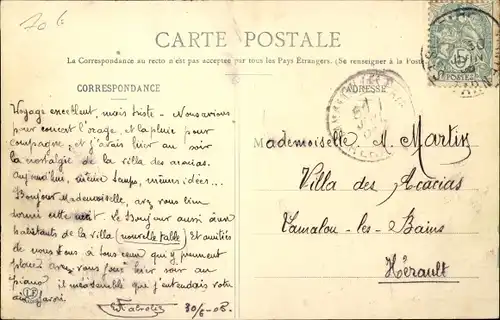 70 €
CARTE POSTALE
La Correspondance au recto n'est pas acceptée par tous les Pays Étrangers. (Se renseigner à la Poste
CORRESPONDANCE
ADRESSE
5
POSTES
Voyage excellent, mais triste - Nous avions
pour concert l'orage, et la pluie pour
compagne, et j'avais hier au soir
la nostalgie de la villa des acacias.
Aujourd'hui, même temps, mêmes idées...
Bonjour Mademoiselle, avez vous bien
dormi cette nuit. Le Bonjour aussi aux
habitants de la villa (nouvelle table) Et amitiés
de nous tous à tous ceux qui y prennent
place. avez vous joué hier soir au
piano, il me semblait que j'entendais votre
air favori.
30/6-08.
Mademoiselle M. Martin
Villa des Acacias
Lamalou-les-Bains
Hérault